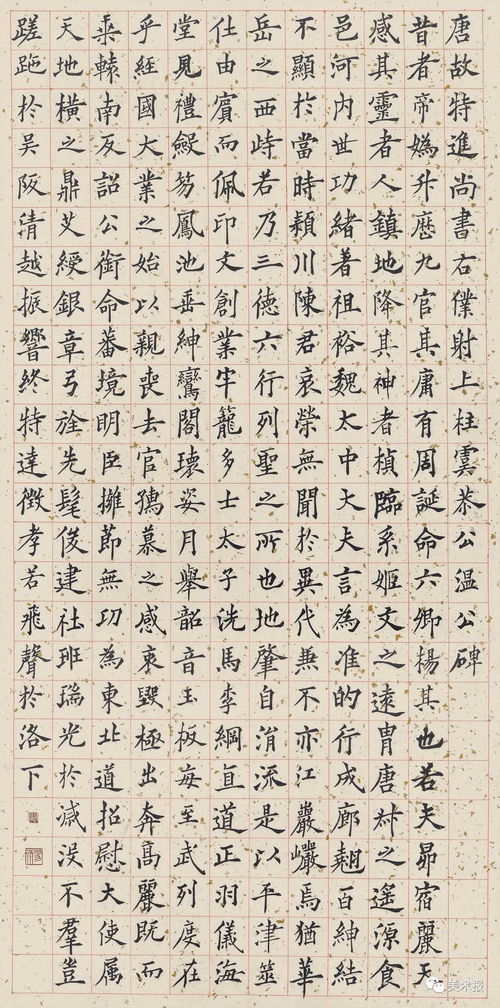 唐故特進尚書右僕射上柱虞恭公温公碑
昔者帝媯升歷九官其庸有周誕命六卿楊其也若夫昴宿麗天
感其靈者人鎮地降其神者楨臨系姬文之遠胄唐叔之遥源食
邑河内世功緒著祖裕魏太中大夫言為准的行成廊翹百紳結
不顯於當時穎川陳君哀榮無聞於異代兼不亦江巖巘焉猶華
岳之西峙若乃三德六行列聖之所也地肇自涓流是以平津筮
仕由賓而佩印文創業牢籠多士太子洗馬李綱直道正羽儀海
堂見禮鯁笏鳳池垂紳鸞閣瓌姿月舉韶音玉板每至武列度在
乎經國大業之始以親喪去官孺慕之感哀毀極出奔高麗既而
桒轅南反詔公銜命蕃境明臣擁節無功為東北道招慰大使属
天地橫之鼎艾綬銀章弓旌先髦俊建社班瑞光於減没不羣豈
蹉跎於吴阪清越振響終特達徵孝若飛聲於洛下
美术报